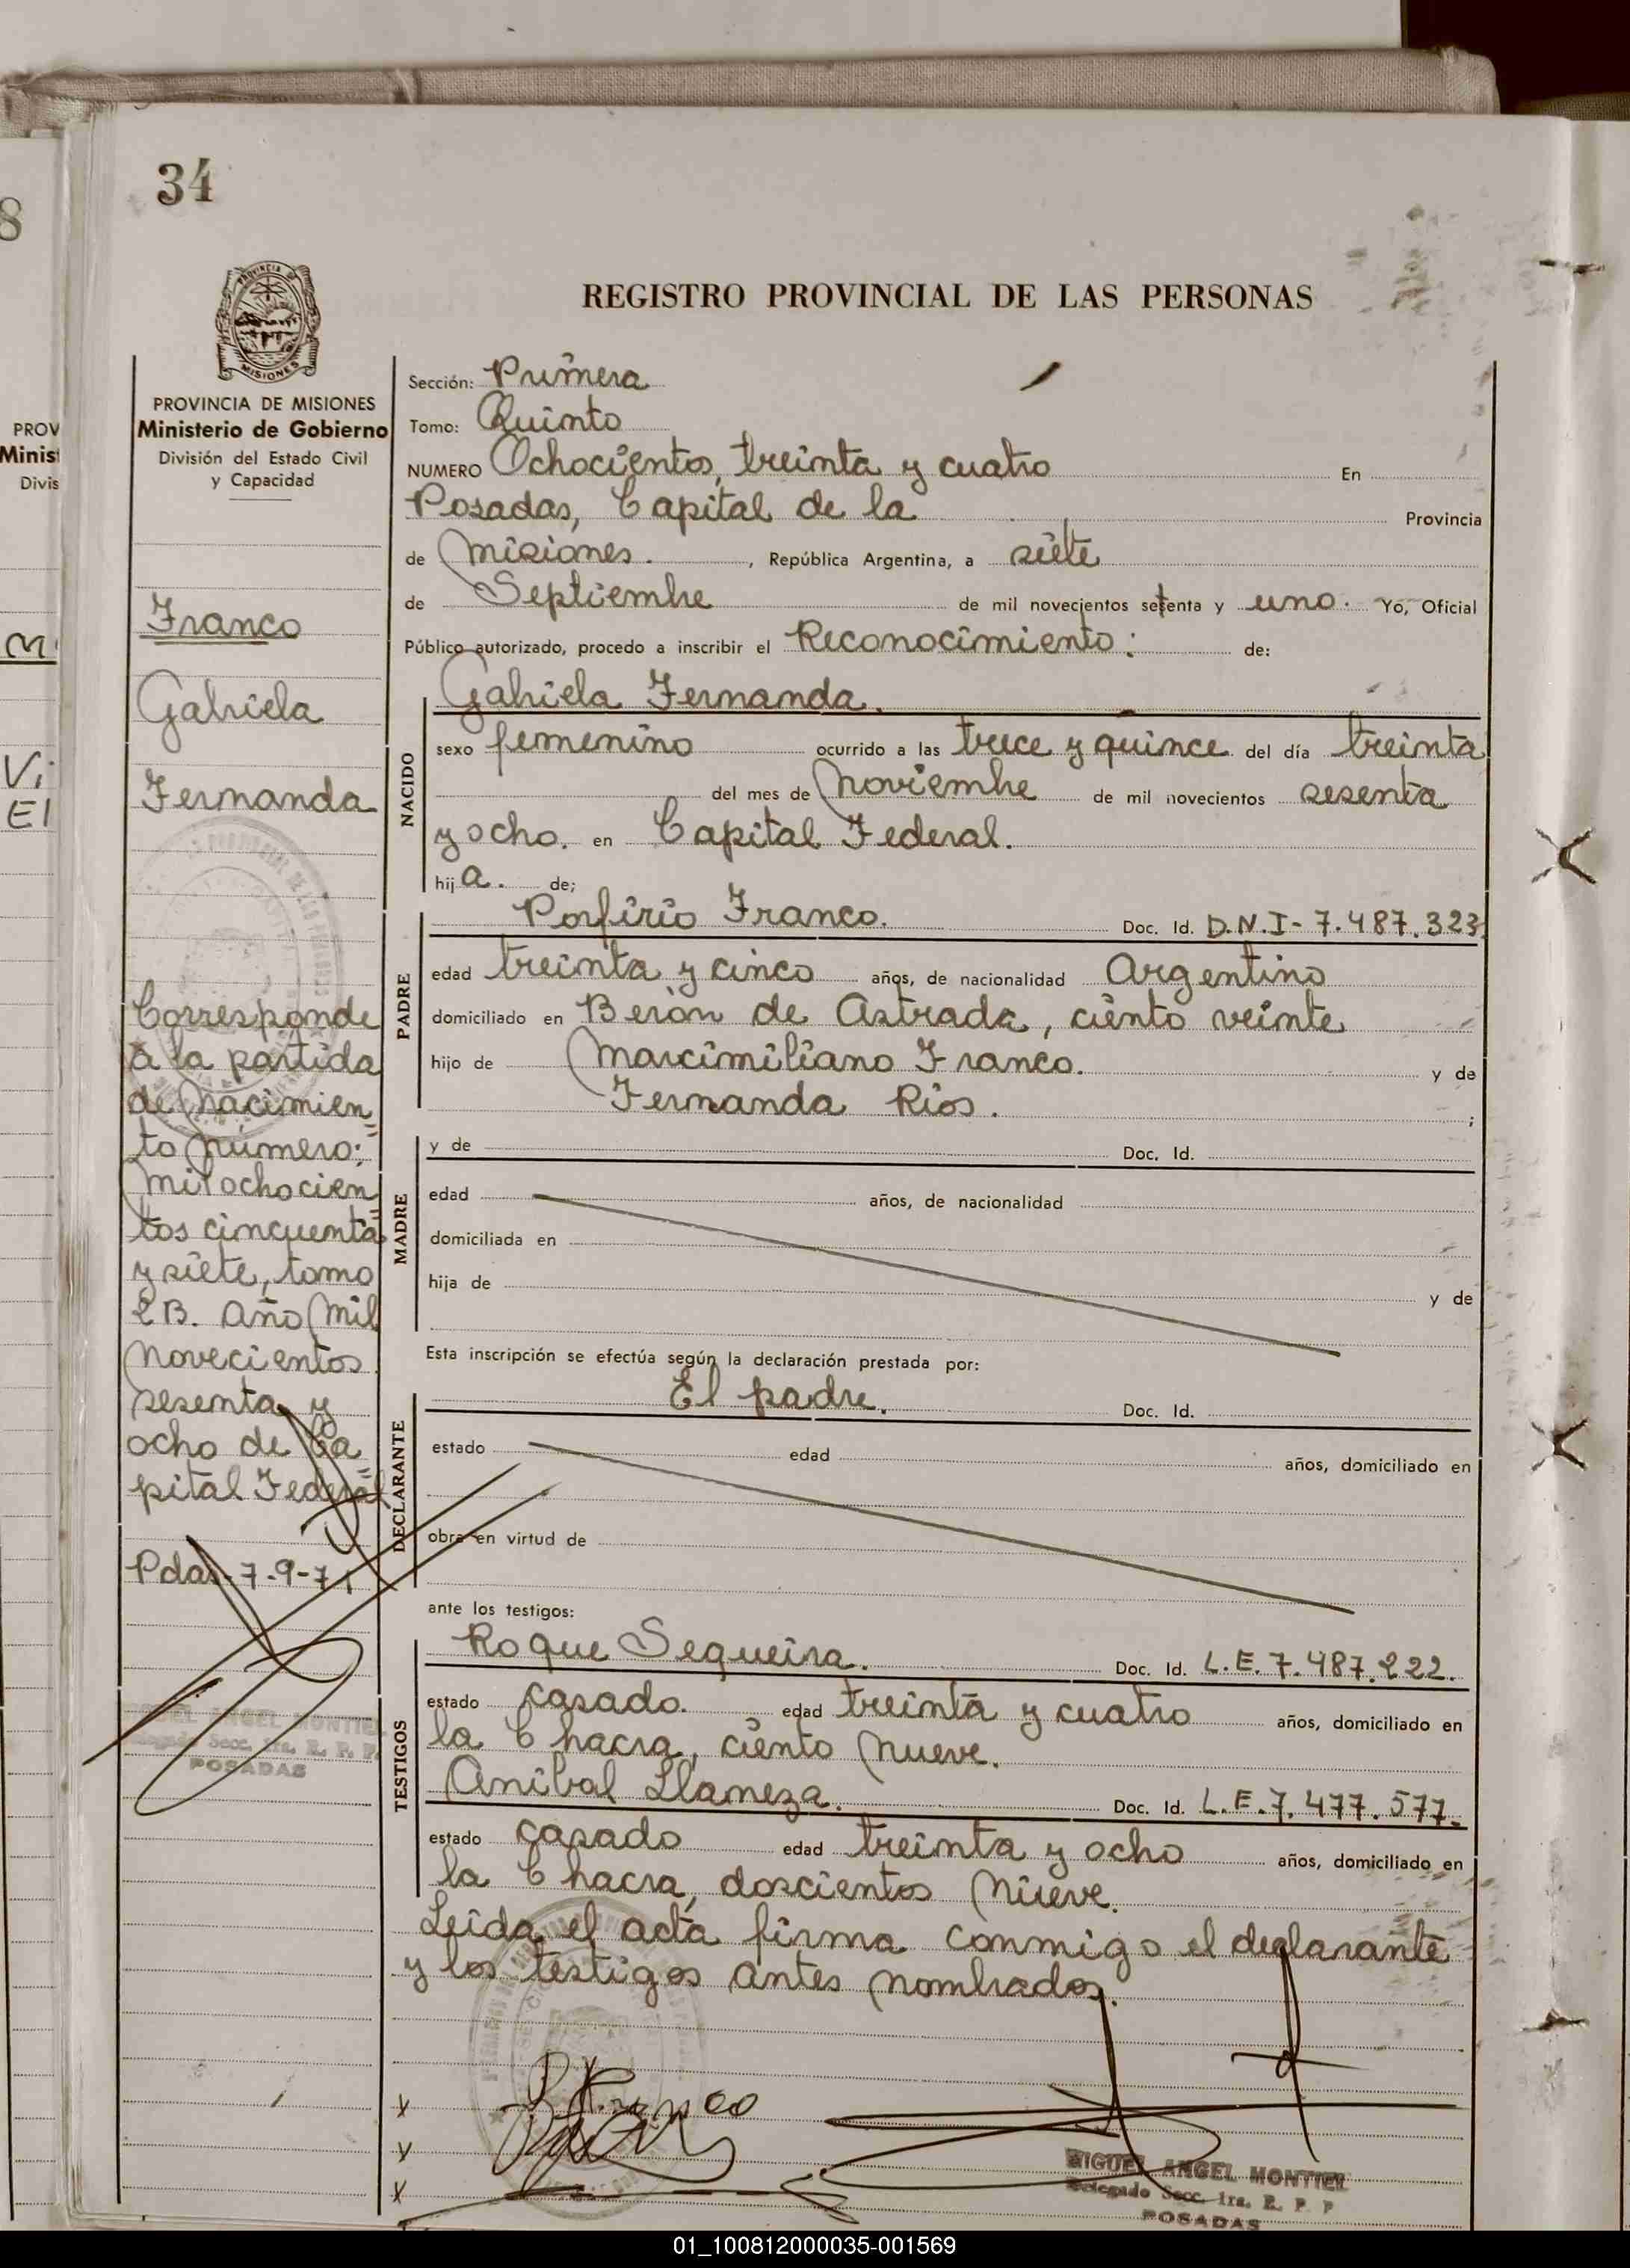 34
8
REGISTRO PROVINCIAL DE LAS PERSONAS
PROVINCIA DE MISIONES
Ministerio de Gobierno
División del Estado Civil
y Capacidad
PROV
Minis
Divis
Franco
Gabriela
Fernanda
Corresponde
a la partida
de nacimien
to número:
mil ochocien
tos cincuenta
y siete, tomo
2B. Año mil
novecientos
sesenta y
ocho de Ca
pital Federal
Pdas. 7-9-71
ANGEL MONTIEL
Secc. 1ra. R. P. P.
POSADAS
Sección: Primera
Tomo: Quinto
NUMERO Ochocientos, treinta y cuatro En
Posadas, Capital de la Provincia
de Misiones. , República Argentina, a siete
de Septiembre de mil novecientos setenta y uno. Yo, Oficial
Público autorizado, procedo a inscribir el Reconocimiento: de:
NACIDO
Gabriela Fernanda.
sexo femenino ocurrido a las trece y quince del día treinta
del mes de Noviembre de mil novecientos sesenta
y ocho. en Capital Federal.
hija. de;
PADRE
Porfirio Franco. Doc. Id. D.N.I- 7.487.323
edad treinta y cinco años, de nacionalidad Argentino
domiciliado en Berón de Astrada, ciento veinte
hijo de Marcimiliano Franco. y de
Fernanda Rios. ;
MADRE
y de Doc. Id.
edad años, de nacionalidad
domiciliada en
hija de y de
Esta inscripción se efectúa según la declaración prestada por:
DECLARANTE
El padre. Doc. Id.
estado edad años, domiciliado en
obra en virtud de
ante los testigos:
TESTIGOS
Roque Sequeira. Doc. Id. L.E. 7.487.222.
estado casado. edad treinta y cuatro años, domiciliado en
la Chacra, ciento nueve.
Anibal Llameza. Doc. Id. L.E. 7.477.577.
estado casado edad treinta y ocho años, domiciliado en
la Chacra, doscientos nueve.
Leida el acta firma conmigo el declarante
y los testigos antes nombrados.
MIGUEL ANGEL MONTIEL
Delegado Secc. 1ra. R. P. P
POSADAS
01_100812000035-001569